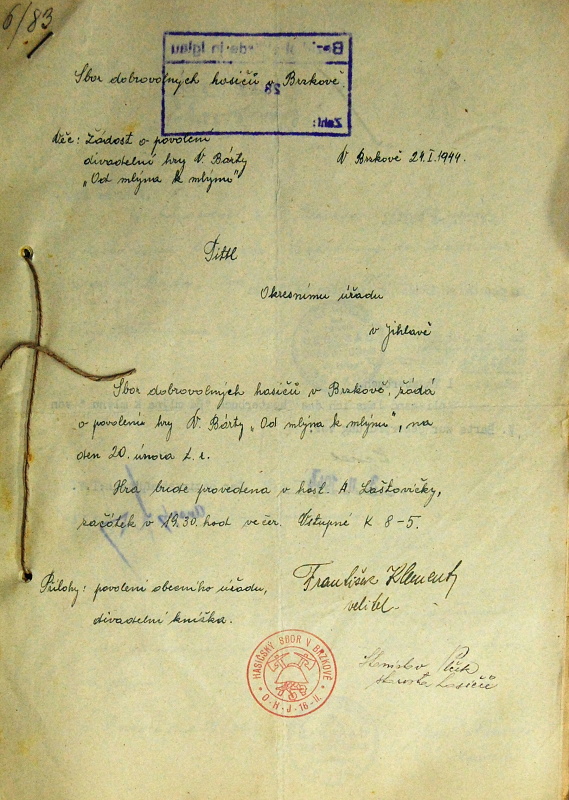 6/83
Sbor dobrovolných hasičů v Brzkově.
Věc: Žádost o povolení
divadelní hry V. Bárty
„Od mlýna k mlýnu"
V Brzkově 24.I.1944.
Titl
Okresnímu úřadu
v Jihlavě
Sbor dobrovolných hasičů v Brzkově, žádá
o povolení hry V. Bárty „Od mlýna k mlýnu", na
den 20. února t. r.
Hra bude provedena v host. A. Zaštovičky,
začátek v 19.30 hod večer. Vstupné K 8-5.
Přílohy: povolení obecního úřadu,
divadelní knížka.
František Klement
velitel
Stanislav
starosta hasičů
HASIČSKÝ SBOR V BRZKOVĚ
O·H·J·16·II.